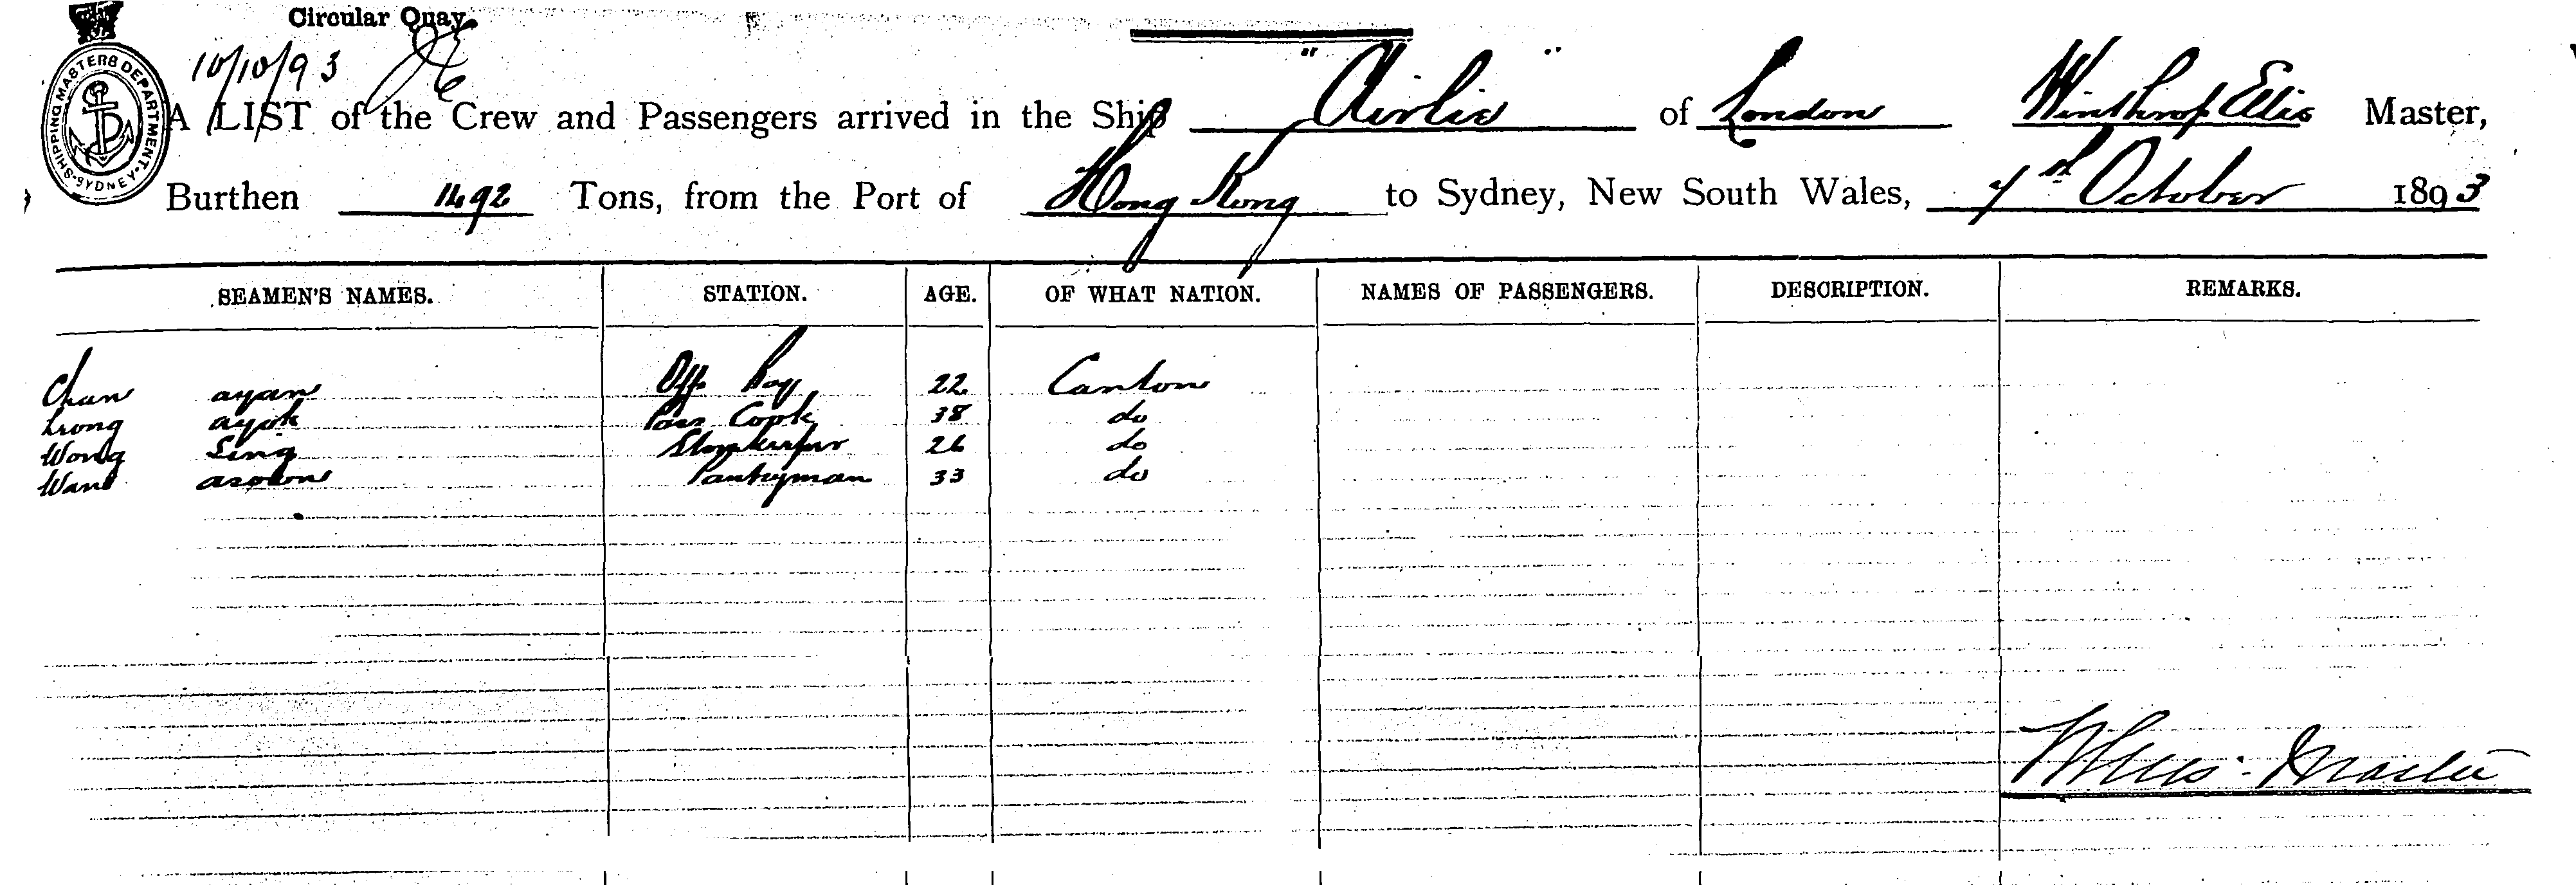 Circular Quay.
10/10/93
SHIPPING MASTERS DEPARTMENT. SYDNEY
A LIST of the Crew and Passengers arrived in the Ship "Airlie" of London Winthrop Ellis Master,
Burthen 1492 Tons, from the Port of Hong Kong to Sydney, New South Wales, 7th October 1893
SEAMEN'S NAMES. STATION. AGE. OF WHAT NATION. NAMES OF PASSENGERS. DESCRIPTION. REMARKS.
Chan ayan Off Boy 22 Canton
ayok Pass Cook 38 do
Wong Sing Storekeeper 26 do
Pantryman 33 do
WEllis Master